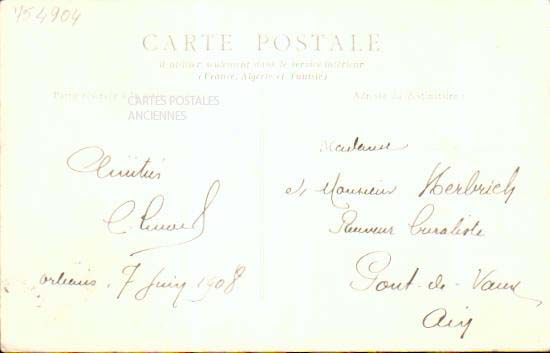 754904
CARTE POSTALE
à utiliser seulement dans le service intérieur
(France, Algérie et Tunisie)
CARTES POSTALES
ANCIENNES
Adresse du destinataire :
Amitiés
Orléans 7 Juin 1908
Madame
et Monsieur Herbrich
Buraliste
Pont-de-Vaux
Ain